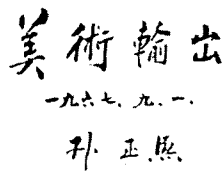 美術輸出
一九六七、九、一、
孙正熙